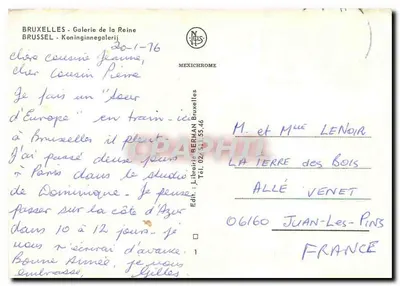 BRUXELLES - Galerie de la Reine
BRUSSEL - Koninginnegalerij
20-1-76
chère cousine Jeanne,
cher cousin Pierre
Je fais un "tour
d'Europe" en train - ici
à Bruxelles il pleut.
J'ai passé deux jours
à Paris dans le studio
de Dominique. Je pense
passer sur la côte d'Azur
dans 10 à 12 jours - je
vous écrirai d'avance.
Bonne Année, je vous
embrasse, Gilles
NELS
MEXICHROME
Edit.: Librairie HERMAN Bruxelles
Tél. 02/511.55.46
1
M. et Mme LENOIR
LA TERRE des BOIS
ALLÉ VENET
06160 JUAN-LES-PINS
FRANCE
CPARAMA